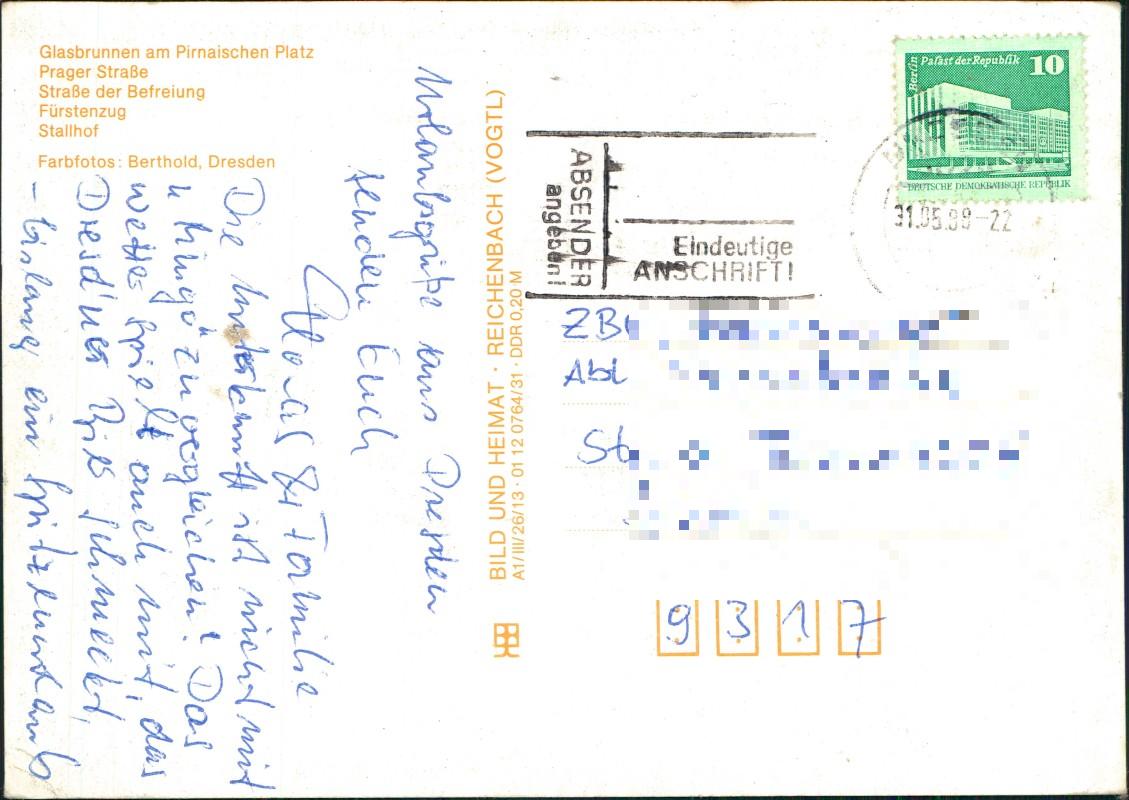 Glasbrunnen am Pirnaischen Platz
Prager Straße
Straße der Befreiung
Fürstenzug
Stallhof
Farbfotos: Berthold, Dresden
Urlaubsgrüße aus Dresden
senden Euch
& Familie
Die Unterkunft ist nicht mit
zu vergleichen! Das
Wetter spielt auch mit, das
Dresd'ner Pils schmeckt,
– bislang ein Spitzenurlaub
BILD UND HEIMAT · REICHENBACH (VOGTL)
A1/III/26/13 · 01 12 0764/31 · DDR 0,20 M
ABSENDER
angeben!
Eindeutige
ANSCHRIFT!
Berlin Palast der Republik 10
DEUTSCHE DEMOKRATISCHE REPUBLIK
31.05.88-22
Abt
St
9317